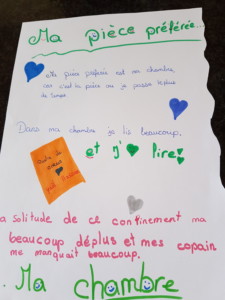 Ma pièce préférée...
Ma pièce préférée est ma chambre,
car c'est la pièce où je passe le plus
de temps.
Dans ma chambre je lis beaucoup.
et j' lire
a solitude de ce confinement ma
beaucoup déplus et mes copain
me manquait beaucoup.
Ma chambre